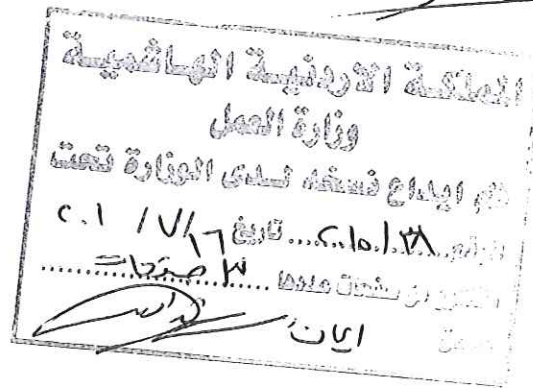 المملكة الاردنية الهاشمية
وزارة العمل
تم ايداع نسخة لدى الوزارة تحت
الرقم تاريخ ١٦/٧/٢٠١
صفحات عددها ٣ صفحات
ايمان